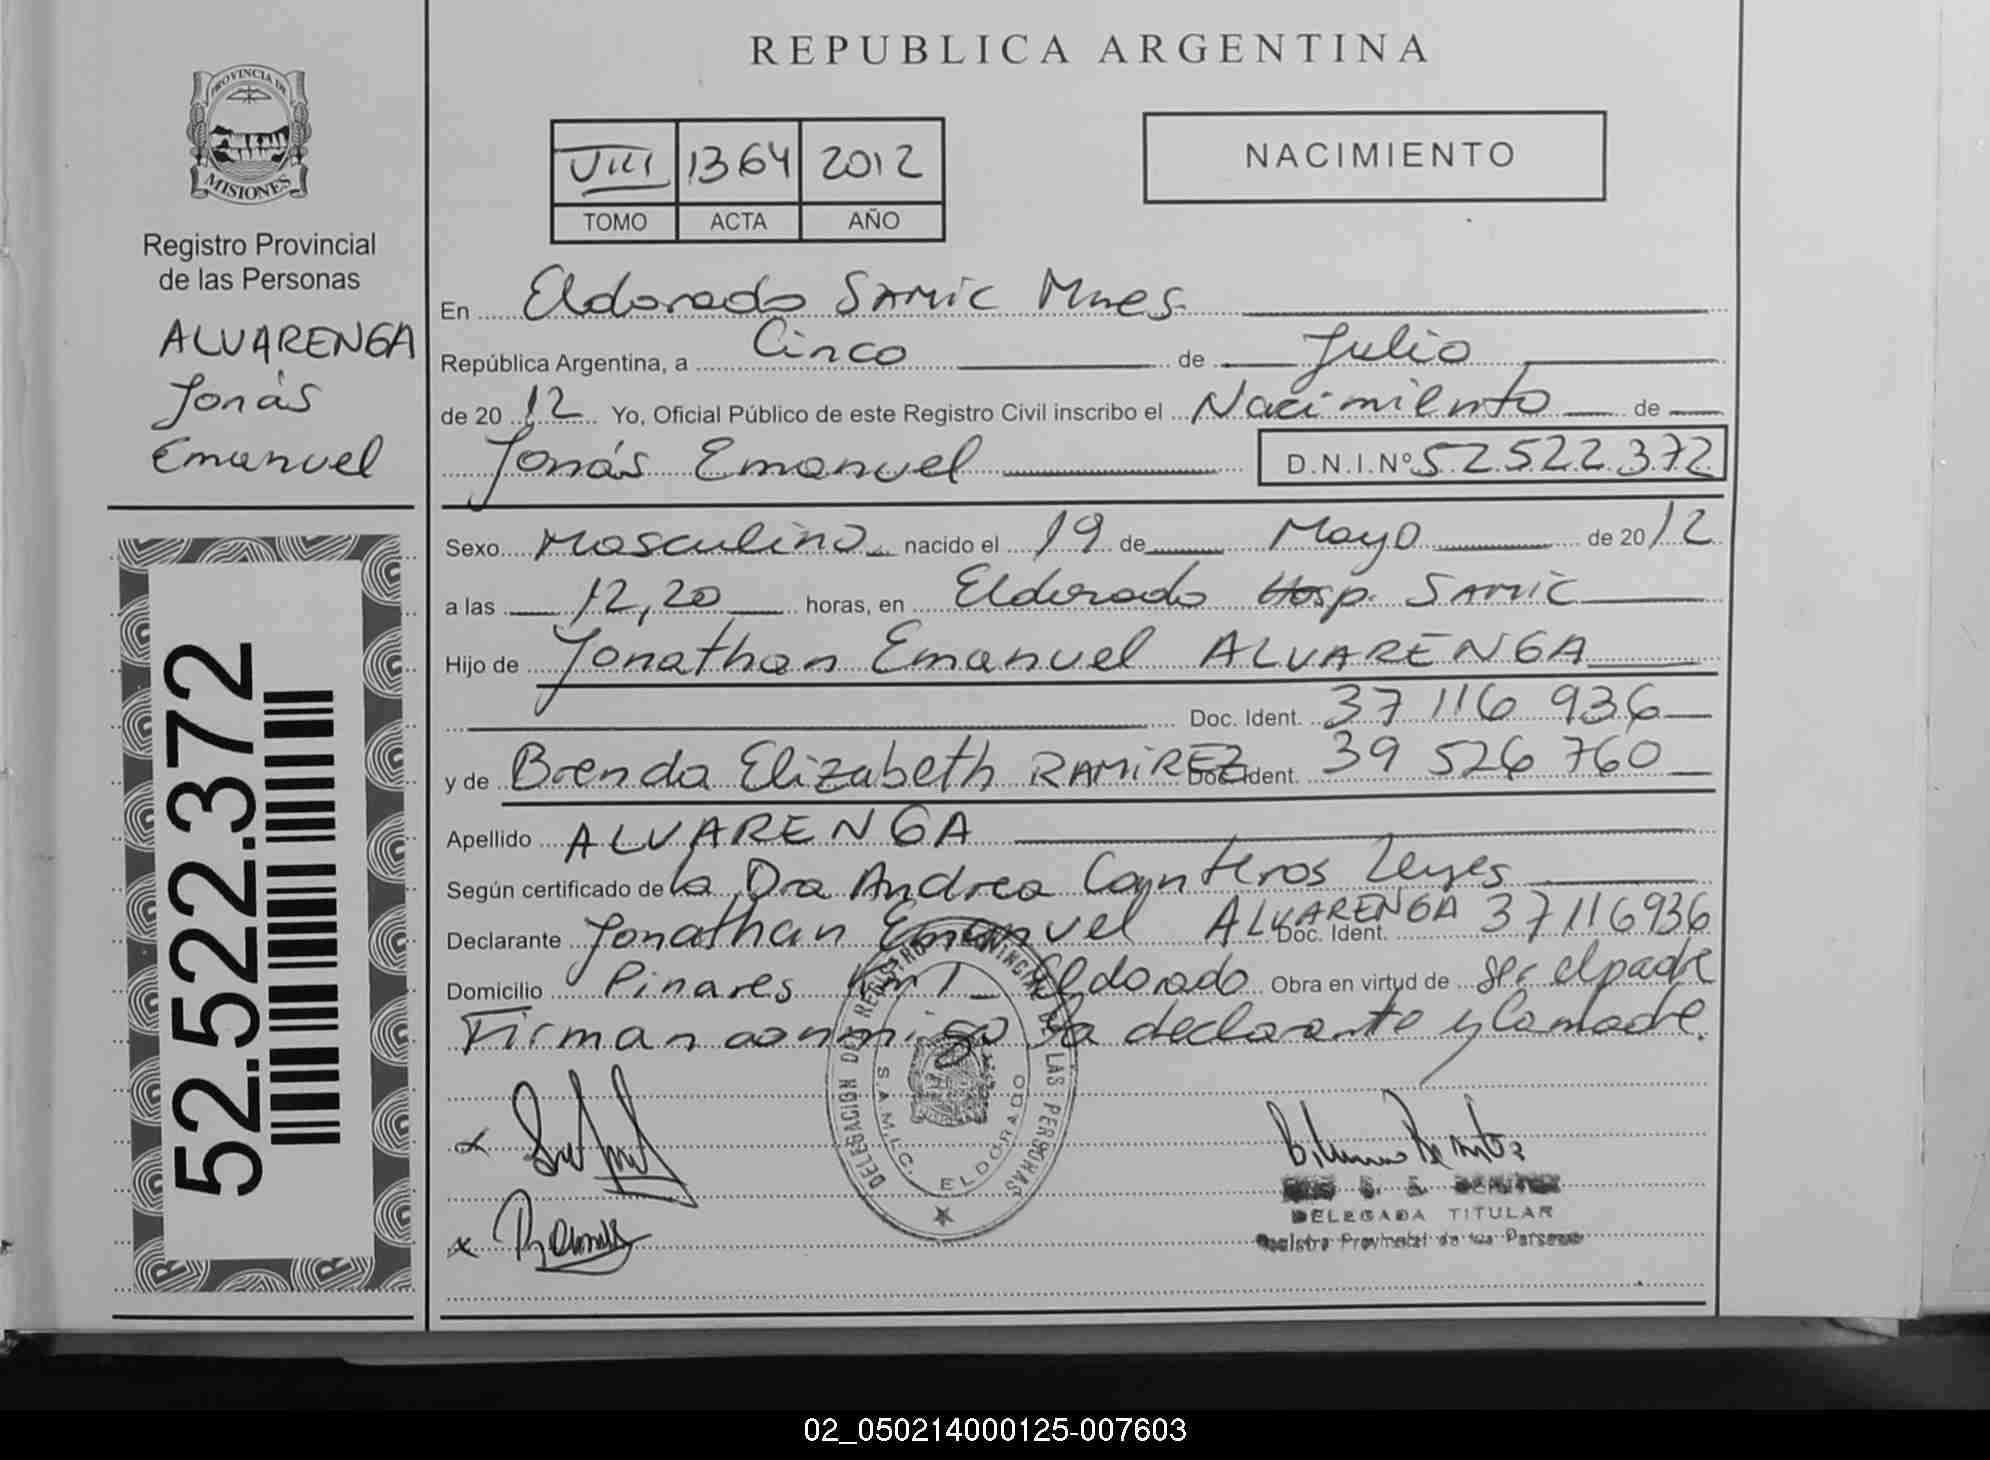 PROVINCIA DE
MISIONES
Registro Provincial
de las Personas
ALVARENGA
Jonás
Emanuel
52.522.372
REPUBLICA ARGENTINA
VIII 1364 2012
TOMO ACTA AÑO
NACIMIENTO
En Eldorado SAMIC Mnes
República Argentina, a Cinco de Julio
de 20 12 Yo, Oficial Público de este Registro Civil inscribo el Nacimiento de
Jonás Emanuel D.N.I.Nº 52.522.372
Sexo Masculino nacido el 19 de Mayo de 20 12
a las 12,20 horas, en Eldorado Hosp. SAMIC
Hijo de Jonathan Emanuel ALVARENGA
Doc. Ident. 37 116 936
y de Brenda Elizabeth RAMIREZ Doc. Ident. 39 526 760
Apellido ALVARENGA
Según certificado de la Dra Andrea Canteros
Declarante Jonathan Emanuel ALVARENGA Doc. Ident. 37116936
Domicilio Pinares Km 1 Eldorado Obra en virtud de ser el padre
Firman conmigo la declarante y la madre.
DELEGACION DEL REGISTRO PROVINCIAL DE LAS PERSONAS
S.A.M.I.C. ELDORADO
DELEGADA TITULAR
Registro Provincial de las Personas
02_050214000125-007603